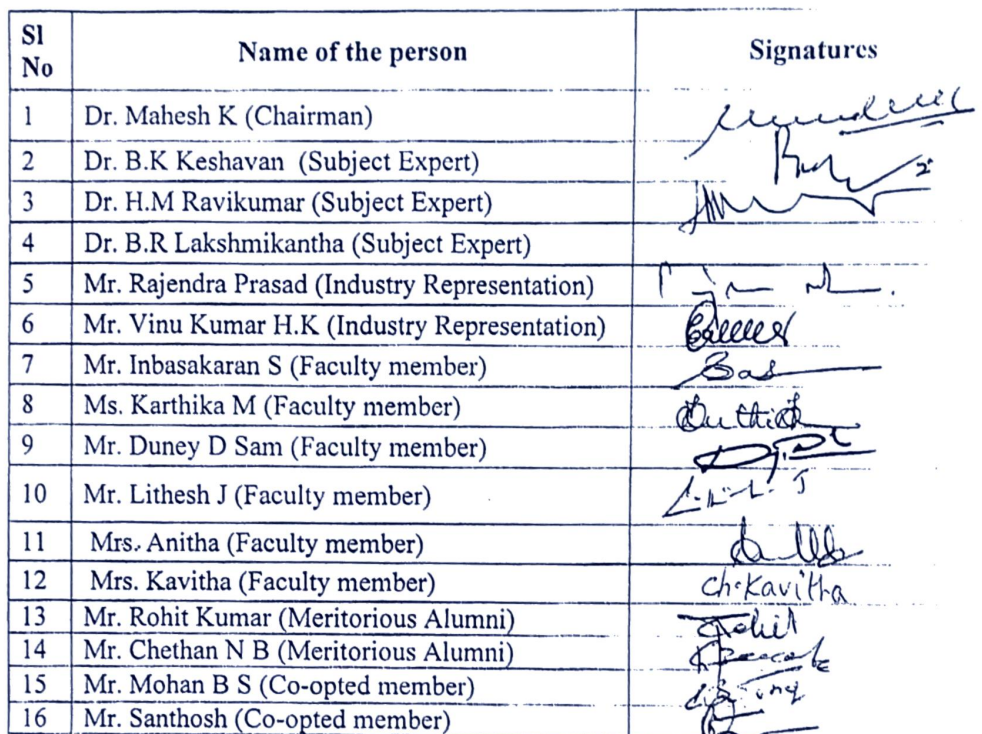 Sl No Name of the person Signatures
1 Dr. Mahesh K (Chairman)
2 Dr. B.K Keshavan (Subject Expert)
3 Dr. H.M Ravikumar (Subject Expert)
4 Dr. B.R Lakshmikantha (Subject Expert)
5 Mr. Rajendra Prasad (Industry Representation)
6 Mr. Vinu Kumar H.K (Industry Representation)
7 Mr. Inbasakaran S (Faculty member)
8 Ms. Karthika M (Faculty member)
9 Mr. Duney D Sam (Faculty member)
10 Mr. Lithesh J (Faculty member)
11 Mrs. Anitha (Faculty member)
12 Mrs. Kavitha (Faculty member) Ch.Kavitha
13 Mr. Rohit Kumar (Meritorious Alumni)
14 Mr. Chethan N B (Meritorious Alumni)
15 Mr. Mohan B S (Co-opted member)
16 Mr. Santhosh (Co-opted member)